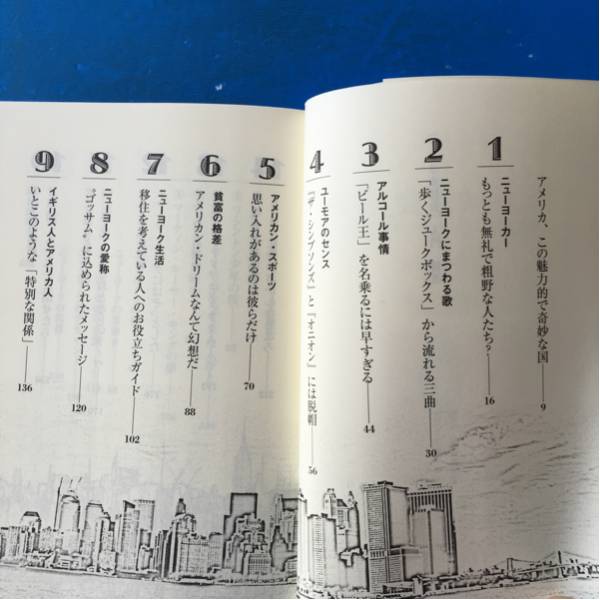 アメリカ、この魅力的で奇妙な国——9
1
ニューヨーカー
もっとも無礼で粗野な人たち?——16
2
ニューヨークにまつわる歌
「歩くジュークボックス」から流れる三曲——30
3
アルコール事情
「ビール王」を名乗るには早すぎる——44
4
ユーモアのセンス
『ザ・シンプソンズ』と『オニオン』には脱帽——56
5
アメリカン・スポーツ
思い入れがあるのは彼らだけ——70
6
貧富の格差
アメリカン・ドリームなんて幻想だ——88
7
ニューヨーク生活
移住を考えている人へのお役立ちガイド——102
8
ニューヨークの愛称
“ゴッサム”に込められたメッセージ——120
9
イギリス人とアメリカ人
いとこのような「特別な関係」——136